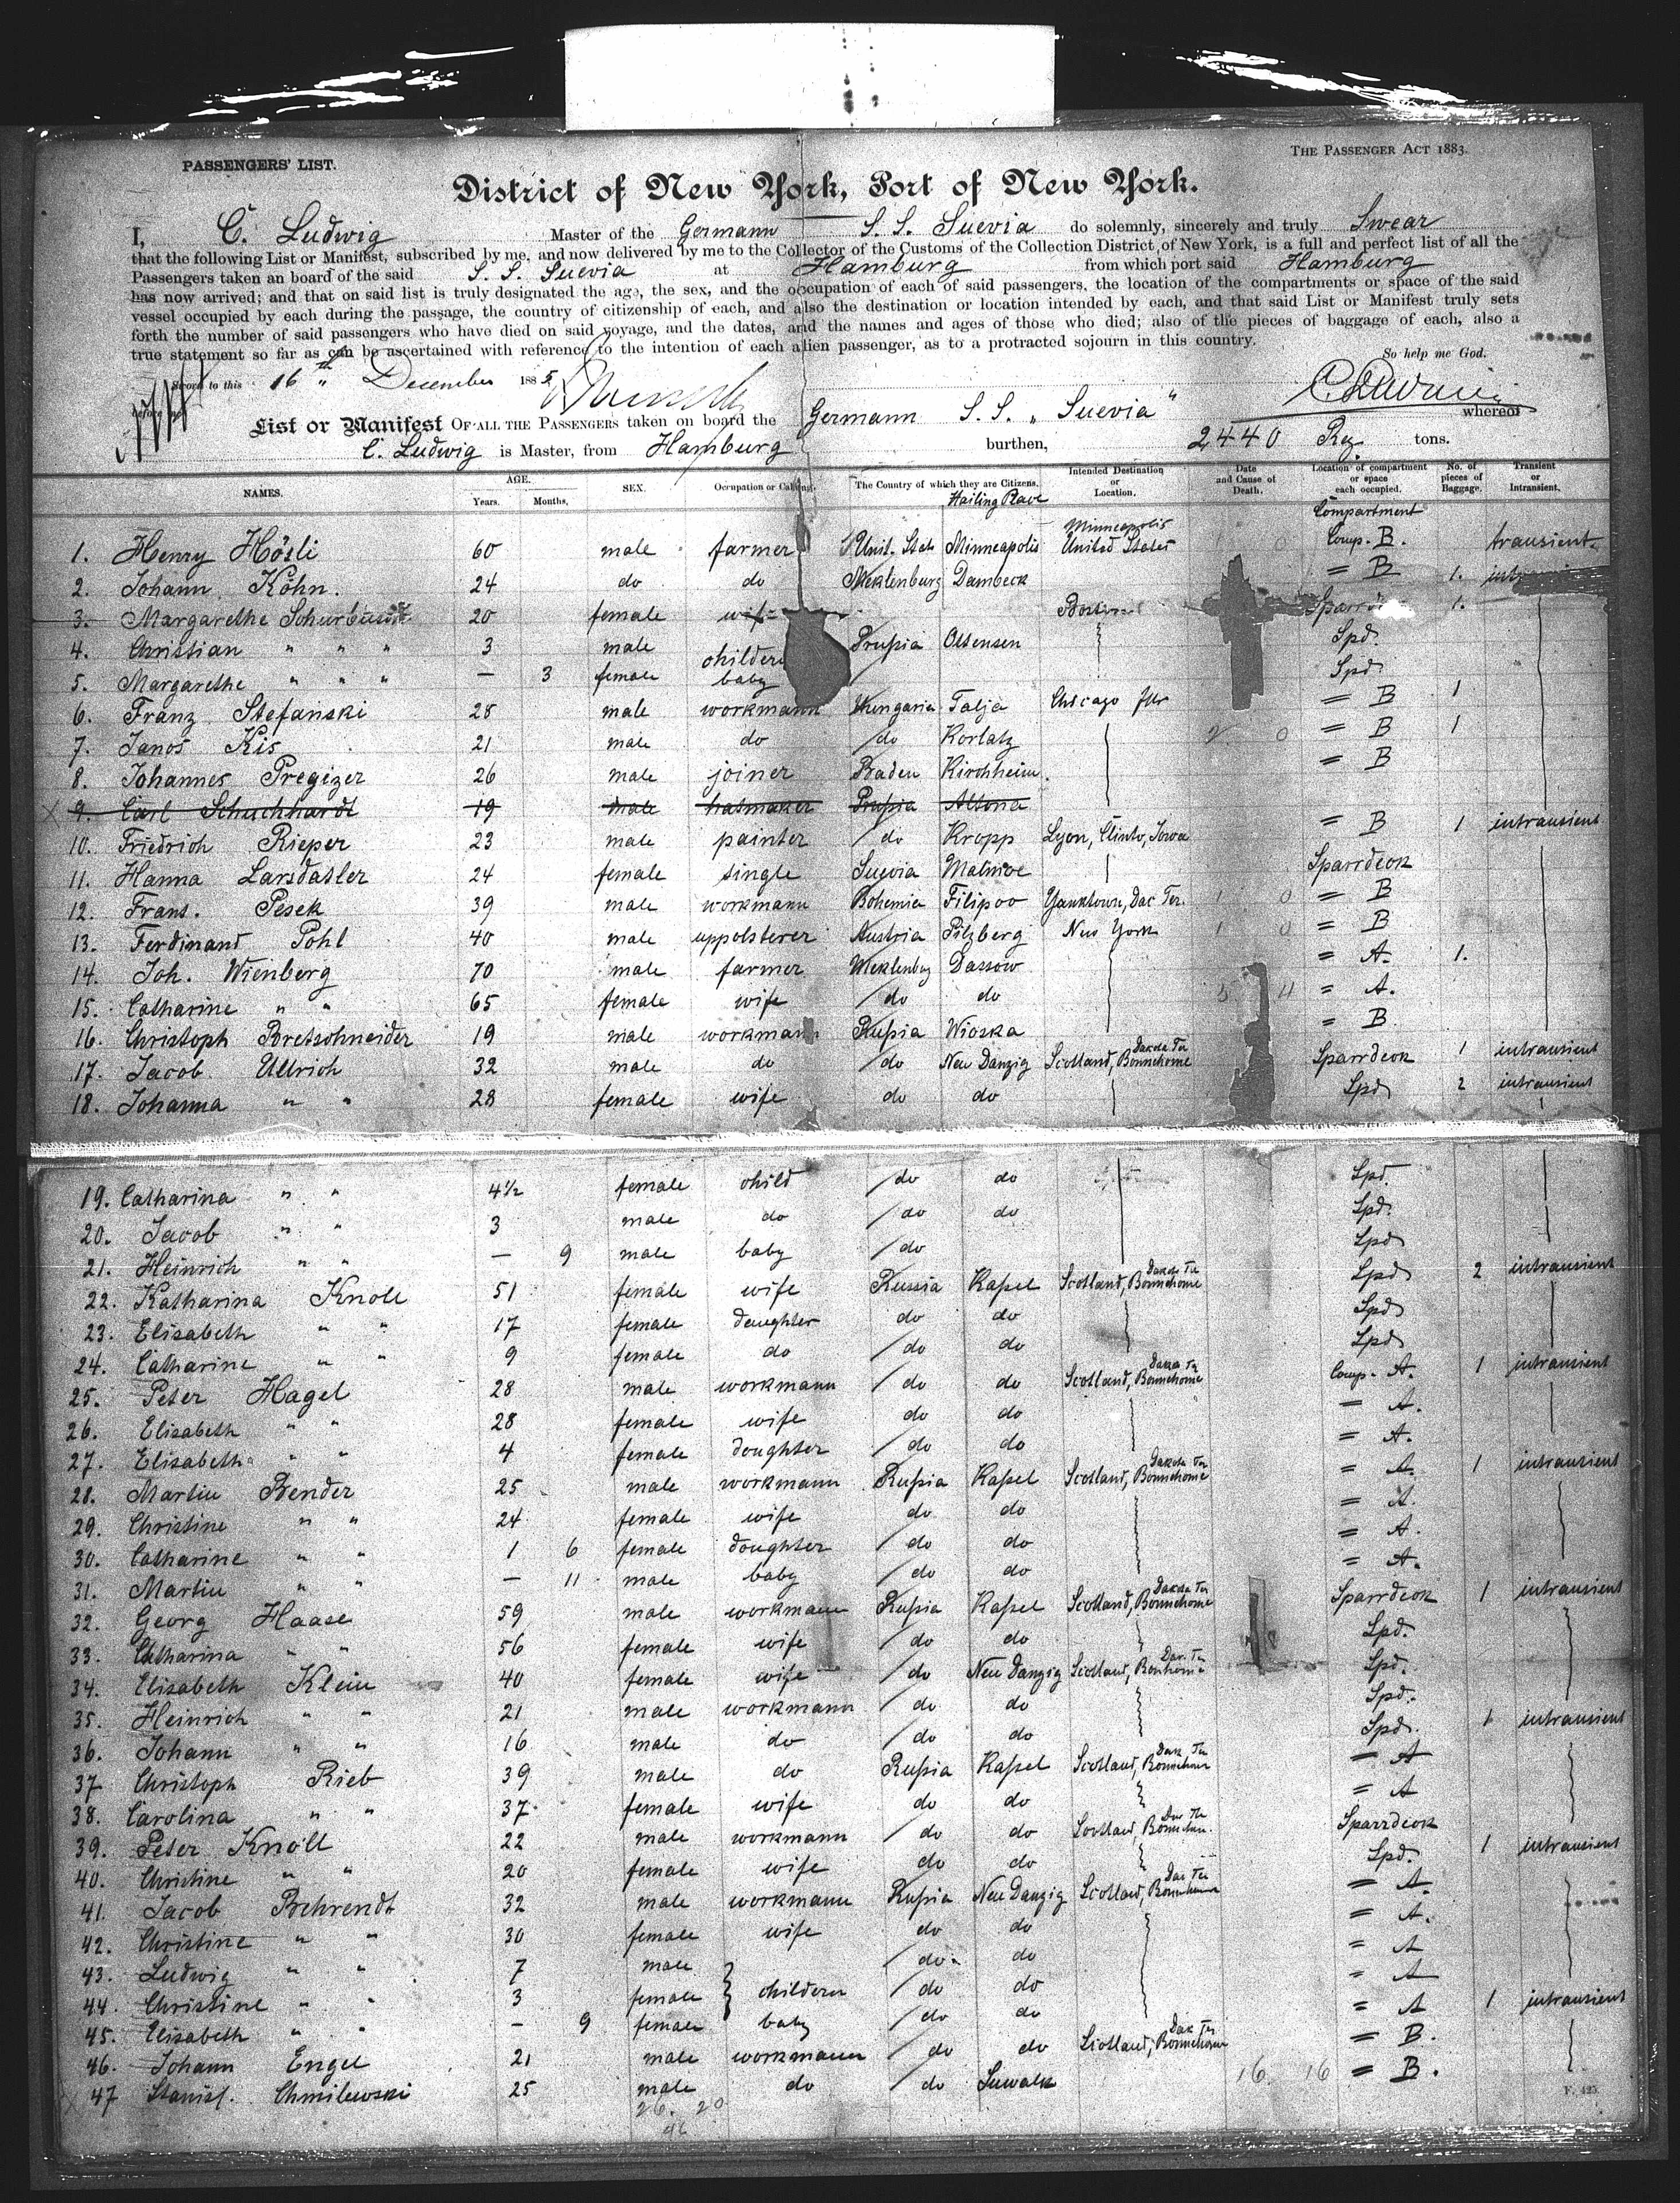 PASSENGERS' LIST.
THE PASSENGER ACT 1883.
District of New York, Port of New York.
I, C. Ludwig Master of the Germann S. S. Suevia do solemnly, sincerely and truly Swear
that the following List or Manifest, subscribed by me, and now delivered by me to the Collector of the Customs of the Collection District of New York, is a full and perfect list of all the
Passengers taken on board of the said S. S. Suevia at Hamburg from which port said Hamburg
has now arrived; and that on said list is truly designated the age, the sex, and the occupation of each of said passengers, the location of the compartments or space of the said
vessel occupied by each during the passage, the country of citizenship of each, and also the destination or location intended by each, and that said List or Manifest truly sets
forth the number of said passengers who have died on said voyage, and the dates, and the names and ages of those who died; also of the pieces of baggage of each, also a
true statement so far as can be ascertained with reference to the intention of each alien passenger, as to a protracted sojourn in this country.
So help me God.
Sworn to this 16th December 1885
before me
List or Manifest OF ALL THE PASSENGERS taken on board the Germann S. S. "Suevia" whereof
C. Ludwig is Master, from Hamburg burthen, 2440 Reg. tons.
NAMES. AGE. Years. Months. SEX. Occupation or Calling. The Country of which they are Citizens. Hailing Place Intended Destination or Location. Date and Cause of Death. Location of compartment or space each occupied. No. of pieces of Baggage. Transient or Intransient.
Compartment
1. Henry Hösli 60 male farmer Unit. Stat. Minneapolis Minneapolis United States Comp. B. transient
2. Johann Köhn. 24 do do Meklenburg Dambeck = B 1.
3. Margarethe 20 female wife Boston 1.
4. Christian " " " 3 male childern Prussia Ottensen Spd.
5. Margarethe " " " — 3 female baby Spd.
6. Franz Stefanski 28 male workmann Hungaria Talja Chicago = B 1
7. Janos Kis 21 male do do Korlatz = B 1
8. Johannes Pregizer 26 male joiner Baden Kirchheim. = B
9. Carl Schuchhardt 19 male hatmaker Prussia Altona
10. Friedrich Rieper 23 male painter do Kropp Lyon, Clinto, Iowa = B 1 intransient
11. Hanna Larsdatler 24 female single Suevia Malmoe Sparrdeck
12. Frans. Pesek 39 male workmann Bohemia Filipov Yanktown, Dac Ter. = B
13. Ferdinand Pohl 40 male uppolsterer Austria Pilzberg New York = B
14. Joh. Wienberg 70 male farmer Meklenburg Dassow = A. 1.
15. Catharine " " 65 female wife do do = A.
16. Christoph Bretschneider 19 male workmann Russia Wioska = B
17. Jacob Ullrich 32 male do do Neu Danzig Scotland, Bonnehome Dakota Ter Sparrdeck 1 intransient
18. Johanna " " 28 female wife do do Spd 2 intransient
19. Catharina " " 4½ female child do do Spd.
20. Jacob " " 3 male do do do Spd.
21. Heinrich " " — 9 male baby do Spd
22. Katharina Knoll 51 female wife Russia Kassel Scotland, Bonnehome Dakota Ter Spd 2 intransient
23. Elisabeth " " 17 female daughter do do Spd
24. Catharine " " 9 female do do do Spd
25. Peter Hagel 28 male workmann do do Scotland, Bonnehome Dakota Ter Comp. A. 1 intransient
26. Elisabeth " " 28 female wife do do = A.
27. Elisabeth " " 4 female doughter do do = A.
28. Martin Bender 25 male workmann Russia Kassel Scotland, Bonnehome Dakota Ter = A. 1 intransient
29. Christine " " 24 female wife do do = A.
30. Catharine " " 1 6 female doughter do do = A.
31. Martin " " — 11 male baby do do = A.
32. Georg Haase 59 male workmann Russia Kassel Scotland, Bonnehome Dakota Ter Sparrdeck 1 intransient
33. Catharina " " 56 female wife do do Spd.
34. Elisabeth Klein 40 female wife do Neu Danzig Scotland, Bonnehome Dak. Ter Spd.
35. Heinrich " " 21 male workmann do do Spd. 1 intransient
36. Johann " " 16 male do do do Spd.
37 Christoph Rieb 39 male do Russia Kassel Scotland, Bonnehome Dak Ter = A
38. Carolina " " 37 female wife do do = A
39. Peter Knöll 22 male workmann do do Scotland, Bonnehom. Dac Ter Sparrdeck
40. Christine " " 20 female wife do do Spd. 1 intransient
41. Jacob Behrendt 32 male workmann Russia Neu Danzig Scotland, Bonnehome Dac Ter = A.
42. Christine " " 30 female wife do do = A.
43. Ludwig " " 7 male childern do do = A
44. Christine " " 3 female do do = A
45. Elisabeth " " — 9 female baby do do = A 1 intransient
46. Johann Engel 21 male workmann do do Scotland, Bonnehome Dak Ter = B.
47 Stanisl. Chmilewski 25 male do do Suwalk 16. 16 = B.
26. 20
46
F. 425